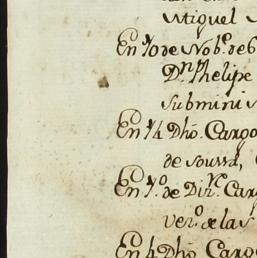 Miguel
En 10 de Nob.e de 6
D.n Phelipe
Subminis
En 14 Dho. Cargo
de sousa,
En 1.o de Diz.e Carg
Ver.o de las
En 4 Dho. Cargo